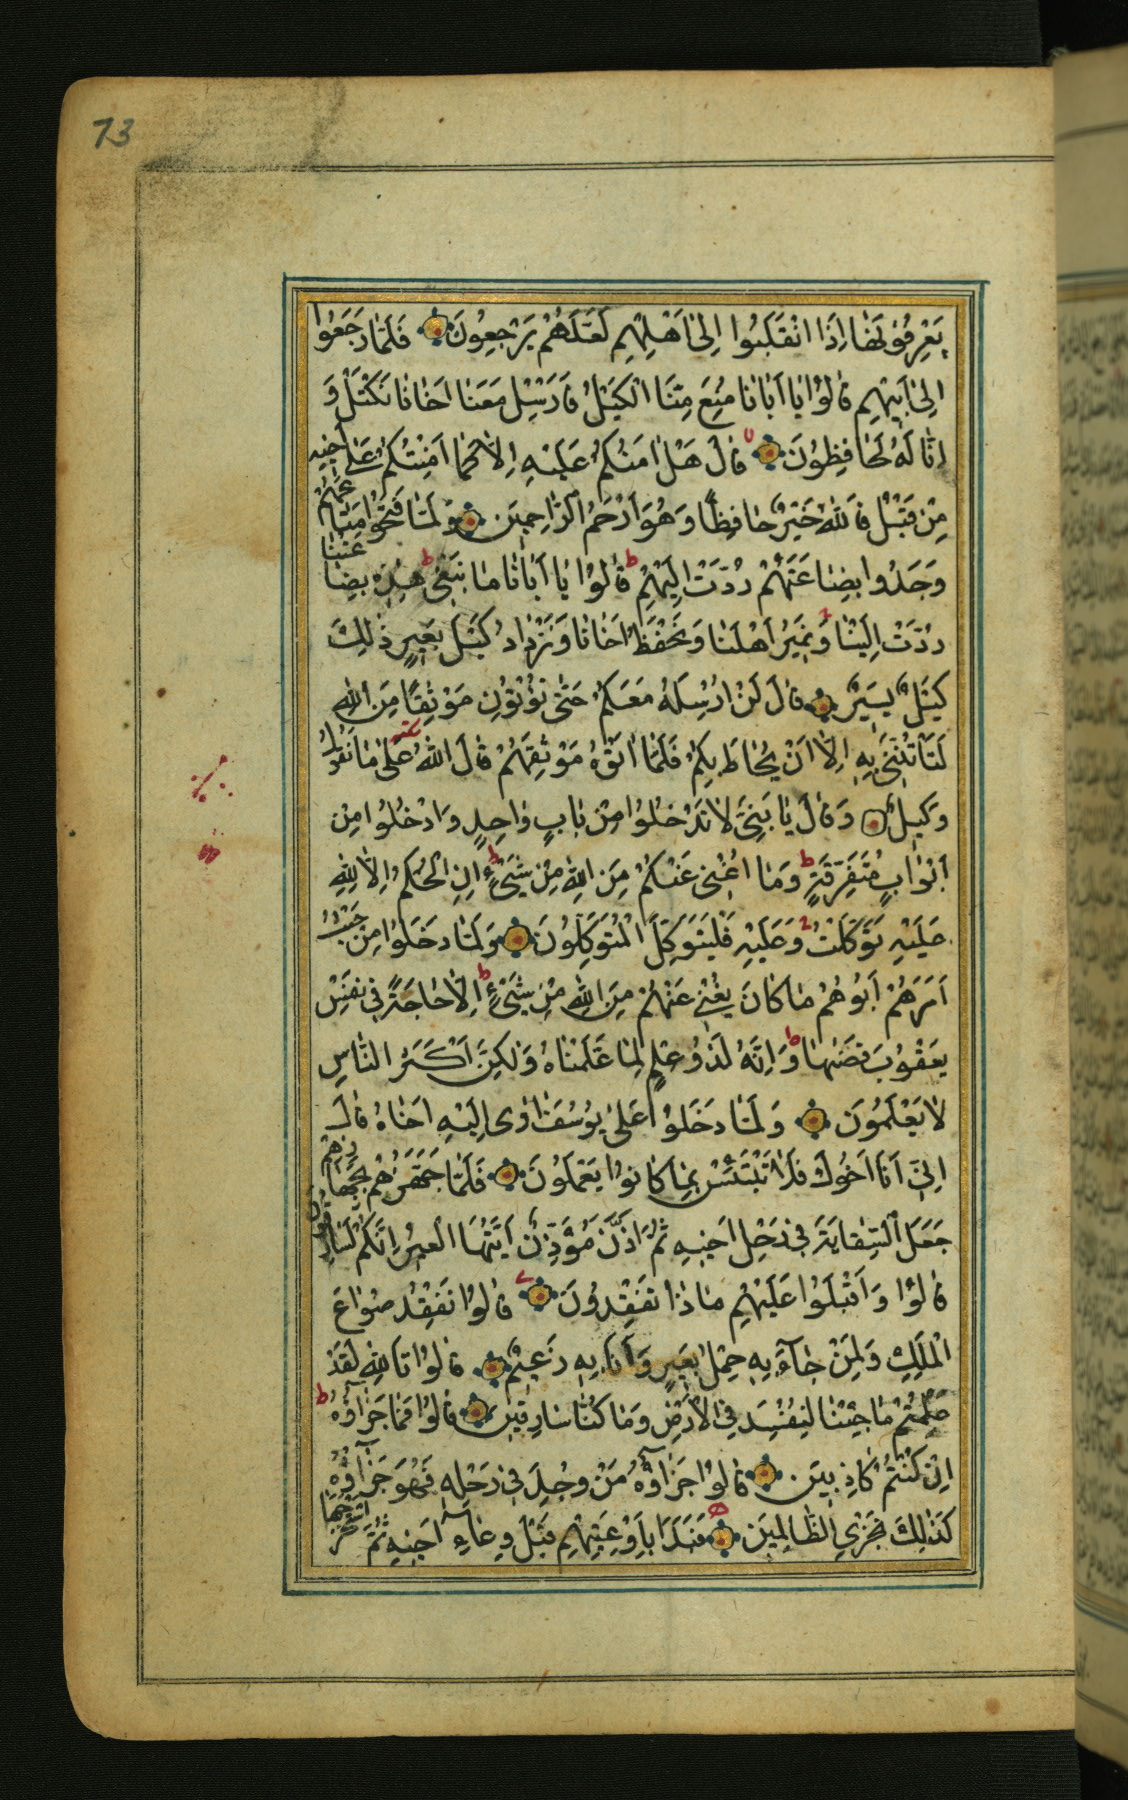 73
يَعْرِفُونَهَا إِذَا انْقَلَبُوا إِلىٰ أَهْلِهِمْ لَعَلَّهُمْ يَرْجِعُونَ فَلَمَّا رَجَعُوا
إِلىٰ أَبِيهِمْ قَالُوا يَا أَبَانَا مُنِعَ مِنَّا الْكَيْلُ فَأَرْسِلْ مَعَنَا أَخَانَا نَكْتَلْ وَ
إِنَّا لَهُ لَحَافِظُونَ قَالَ هَلْ اٰمَنُكُمْ عَلَيْهِ إِلَّا كَمَا أَمِنْتُكُمْ عَلىٰ أَخِيهِ
مِنْ قَبْلُ فَاللهُ خَيْرٌ حَافِظًا وَهُوَ أَرْحَمُ الرَّاحِمِينَ وَلَمَّا فَتَحُوا مَتَاعَهُمْ
وَجَدُوا بِضَاعَتَهُمْ رُدَّتْ إِلَيْهِمْ قَالُوا يَا أَبَانَا مَا نَبْغِي هٰذِهِ بِضَاعَتُنَا
رُدَّتْ إِلَيْنَا وَنَمِيرُ أَهْلَنَا وَنَحْفَظُ أَخَانَا وَنَزْدَادُ كَيْلَ بَعِيرٍ ذٰلِكَ
كَيْلٌ يَسِيرٌ قَالَ لَنْ أُرْسِلَهُ مَعَكُمْ حَتّىٰ تُؤْتُونِ مَوْثِقًا مِنَ اللهِ
لَتَأْتُنَّنِي بِهِ إِلَّا أَنْ يُحَاطَ بِكُمْ فَلَمَّا اٰتَوْهُ مَوْثِقَهُمْ قَالَ اللهُ عَلىٰ مَا نَقُولُ
وَكِيلٌ وَقَالَ يَا بَنِيَّ لَا تَدْخُلُوا مِنْ بَابٍ وَاحِدٍ وَادْخُلُوا مِنْ
أَبْوَابٍ مُتَفَرِّقَةٍ وَمَا أُغْنِي عَنْكُمْ مِنَ اللهِ مِنْ شَيْءٍ إِنِ الْحُكْمُ إِلَّا لِلهِ
عَلَيْهِ تَوَكَّلْتُ وَعَلَيْهِ فَلْيَتَوَكَّلِ الْمُتَوَكِّلُونَ وَلَمَّا دَخَلُوا مِنْ حَيْثُ
أَمَرَهُمْ أَبُوهُمْ مَا كَانَ يُغْنِي عَنْهُمْ مِنَ اللهِ مِنْ شَيْءٍ إِلَّا حَاجَةً فِي نَفْسِ
يَعْقُوبَ قَضٰهَا وَإِنَّهُ لَذُو عِلْمٍ لِمَا عَلَّمْنَاهُ وَلٰكِنَّ أَكْثَرَ النَّاسِ
لَا يَعْلَمُونَ وَلَمَّا دَخَلُوا عَلىٰ يُوسُفَ اٰوى إِلَيْهِ أَخَاهُ قَالَ
إِنِّي أَنَا أَخُوكَ فَلَا تَبْتَئِسْ بِمَا كَانُوا يَعْمَلُونَ فَلَمَّا جَهَّزَهُمْ بِجَهَازِهِمْ
جَعَلَ السِّقَايَةَ فِي رَحْلِ أَخِيهِ ثُمَّ أَذَّنَ مُؤَذِّنٌ أَيَّتُهَا الْعِيرُ إِنَّكُمْ لَسَارِقُونَ
قَالُوا وَأَقْبَلُوا عَلَيْهِمْ مَاذَا تَفْقِدُونَ قَالُوا نَفْقِدُ صُوَاعَ
الْمَلِكِ وَلِمَنْ جَاءَ بِهِ حِمْلُ بَعِيرٍ وَأَنَا بِهِ زَعِيمٌ قَالُوا تَاللهِ لَقَدْ
عَلِمْتُمْ مَا جِئْنَا لِنُفْسِدَ فِي الْأَرْضِ وَمَا كُنَّا سَارِقِينَ قَالُوا فَمَا جَزَاؤُهُ
إِنْ كُنْتُمْ كَاذِبِينَ قَالُوا جَزَاؤُهُ مَنْ وُجِدَ فِي رَحْلِهِ فَهُوَ جَزَاؤُهُ
كَذٰلِكَ نَجْزِي الظَّالِمِينَ فَبَدَأَ بِأَوْعِيَتِهِمْ قَبْلَ وِعَاءِ أَخِيهِ ثُمَّ اسْتَخْرَجَهَا